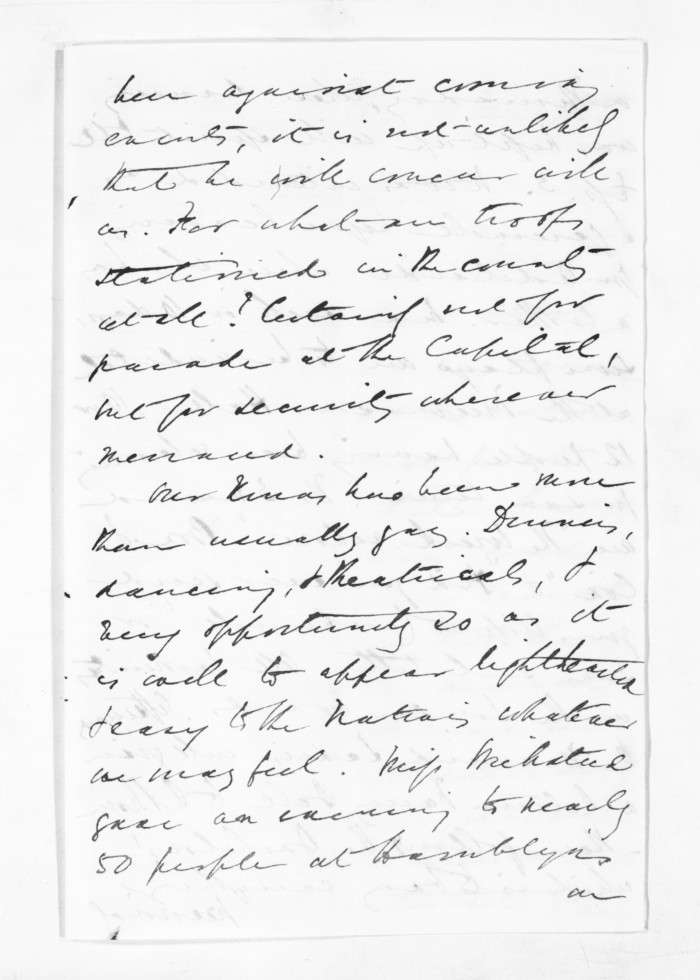 been against coming
events, it is not unlikely
that he will concur with
us. For what are troops
stationed in the country
at all? Certainly not for
parade at the Capital,
but for security wherever
menaced.
Our Xmas has been more
than usually gay. Dinners,
dancing, & theatricals, &
very opportunely so as it
is well to appear lighthearted
& easy to the Natives whatever
we may feel. Miss
gave an evening to nearly
50 people at Hamblyn's
on